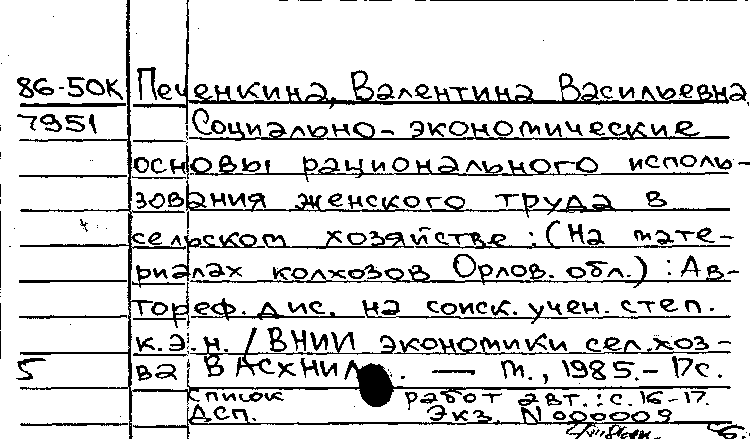 86-50К Печенкина, Валентина Васильевна
7951 Социально-экономические
основы рационального исполь-
зования женского труда в
сельском хозяйстве : (На мате-
риалах колхозов Орлов. обл.) : Ав-
тореф. дис. на соиск. учен. степ.
к.э.н. / ВНИИ экономики сел. хоз-
5 ва ВАСХНИЛ. — М., 1985. - 17с.
Список работ авт.: с. 16-17.
ДСП. Экз. N000009